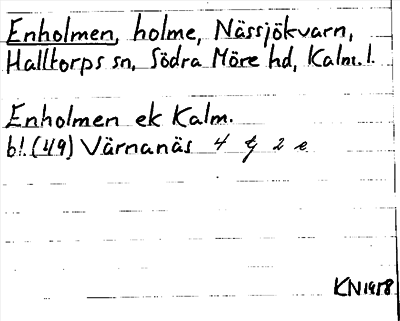 Enholmen, holme, Nässjökvarn,
Halltorps sn, Södra Möre hd, Kalm. l.
Enholmen ek Kalm.
bl. (49) Värnanäs 4 g 2 e
KN 1958